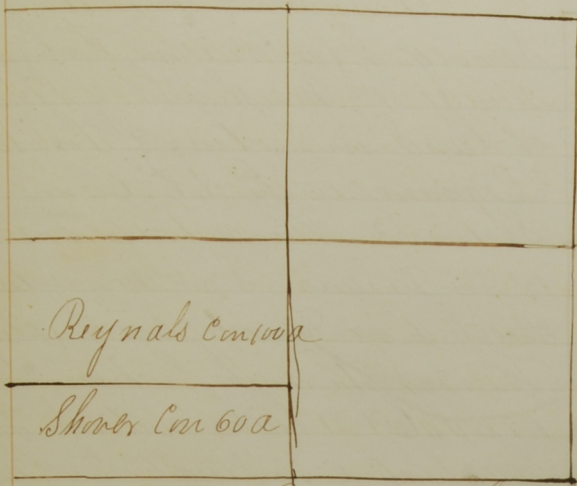 Reynals Con 100 a
Shover Con 60 a